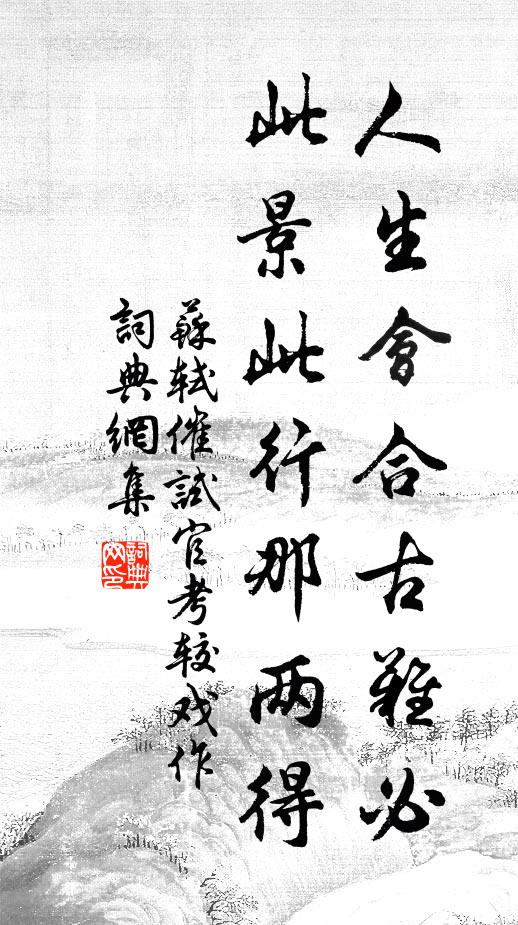 人生會合古難必
此景此行那两得
蘇軾催試官考較戏作
詞典網集
詞典
网印